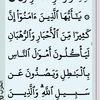 ۞ يَٰٓأَيُّهَا ٱلَّذِينَ ءَامَنُوٓا۟ إِنَّ
كَثِيرًا مِّنَ ٱلْأَحْبَارِ وَٱلرُّهْبَانِ
لَيَأْكُلُونَ أَمْوَٰلَ ٱلنَّاسِ
بِٱلْبَٰطِلِ وَيَصُدُّونَ عَن
سَبِيلِ ٱللَّهِ وَٱلَّذِينَ